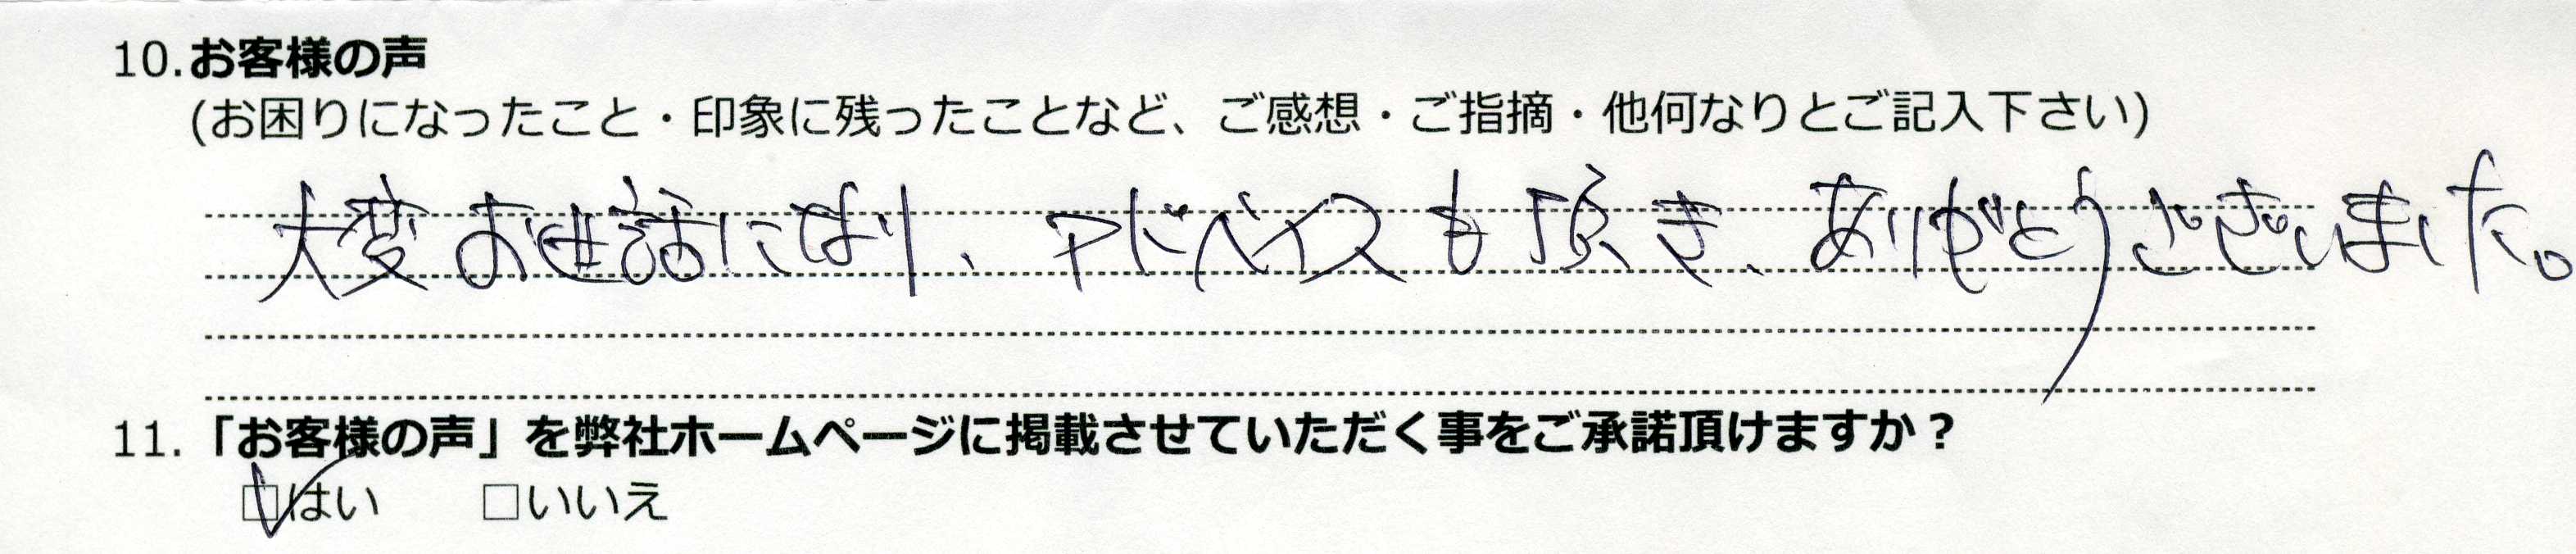 10.お客様の声
(お困りになったこと・印象に残ったことなど、ご感想・ご指摘・他何なりとご記入下さい)
大変お世話になり、アドバイスも頂き、ありがとうございました。
11.「お客様の声」を弊社ホームページに掲載させていただく事をご承諾頂けますか？
☑はい □いいえ